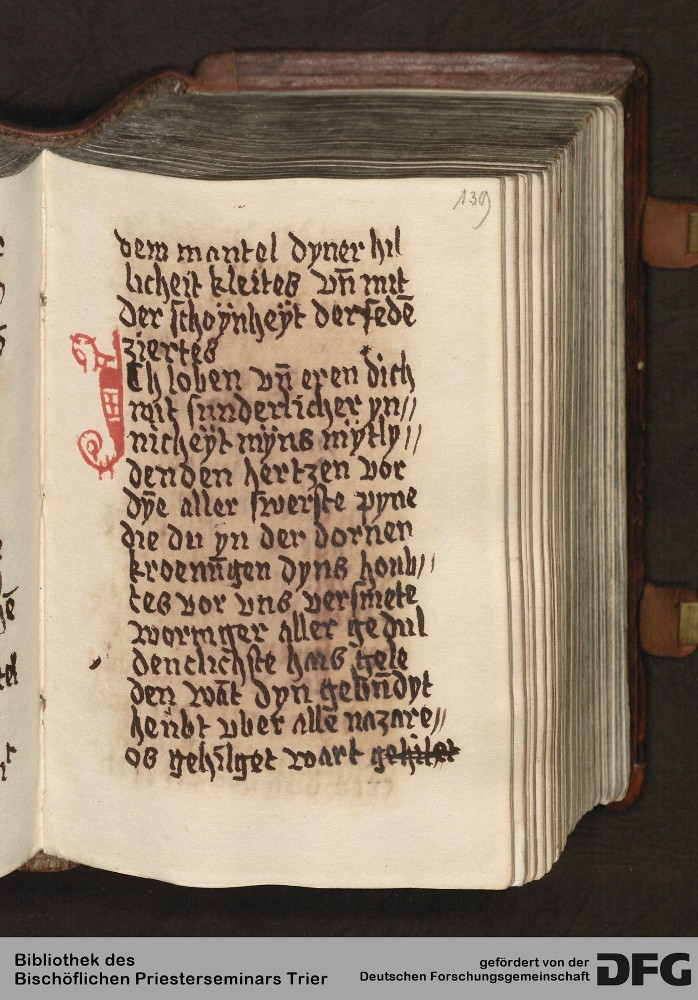 139
dem mantel dyner hil
licheit kleites vn̄ mit
der schoÿnheÿt der fedē
ziertes
Ich loben vn̄ eren dich
mit sunderlicher yn//
nicheÿt mÿns mÿtly//
denden hertzen vor
dÿe aller swerste pyne
die du yn der dornen
kroenūgen dyns houb//
tes vor vns versmete
wormger aller gedul
denclichste hais gele
den wāt dyn gebn̄dyt
heubt vber alle nazare//
os gehilget wart
Bibliothek des
Bischöflichen Priesterseminars Trier
gefördert von der
Deutschen Forschungsgemeinschaft DFG